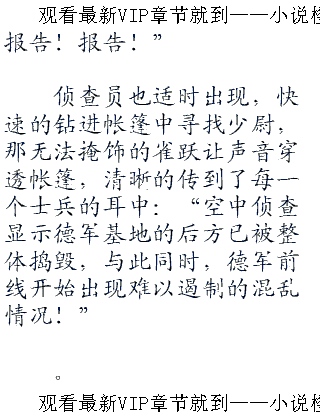 观看最新VIP章节就到——小说
报告！报告！”
侦查员也适时出现，快
速的钻进帐篷中寻找少尉，
那无法掩饰的雀跃让声音穿
透帐篷，清晰的传到了每一
个士兵的耳中：“空中侦查
显示德军基地的后方已被整
体捣毁，与此同时，德军前
线开始出现难以遏制的混乱
情况！”
。
观看最新VIP章节就到——小说